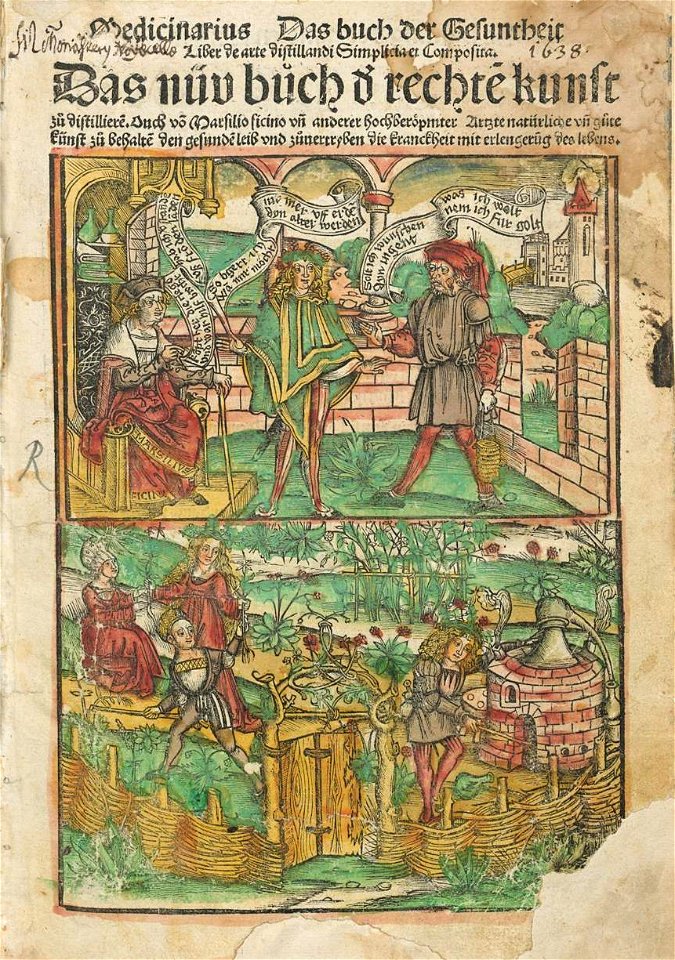 Medicinarius Das buch der Gesuntheit
Liber de arte distillandi Simplicia et Composita.
1638.
Das nüv bůch d rechtē kunst
zů distillierē. Ouch vō Marsilio ficino vñ anderer hochberőpmter Artzte natürliche vñ gůte
kűnst zů behaltē den gesundē leib vnd zůuertryben die kranckheit mit erlengerũg des lebens.
nit mer vff erdē
dan alter werden
was ich wolt
nem ich für golt
MARSILIVS
FICINVS
R